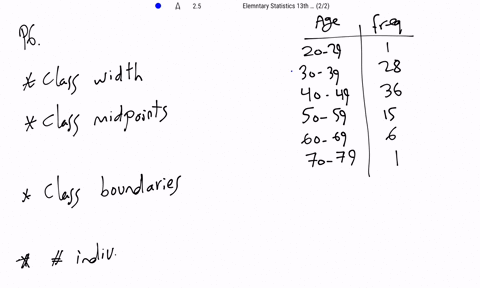 2.5 Elemntary Statistics 13th ... (2/2)
P6.
* Class width
* Class midpoints
* Class boundaries
* # indiv.
Age freq
20-29 1
30-39 28
40-49 36
50-59 15
60-69 6
70-79 1